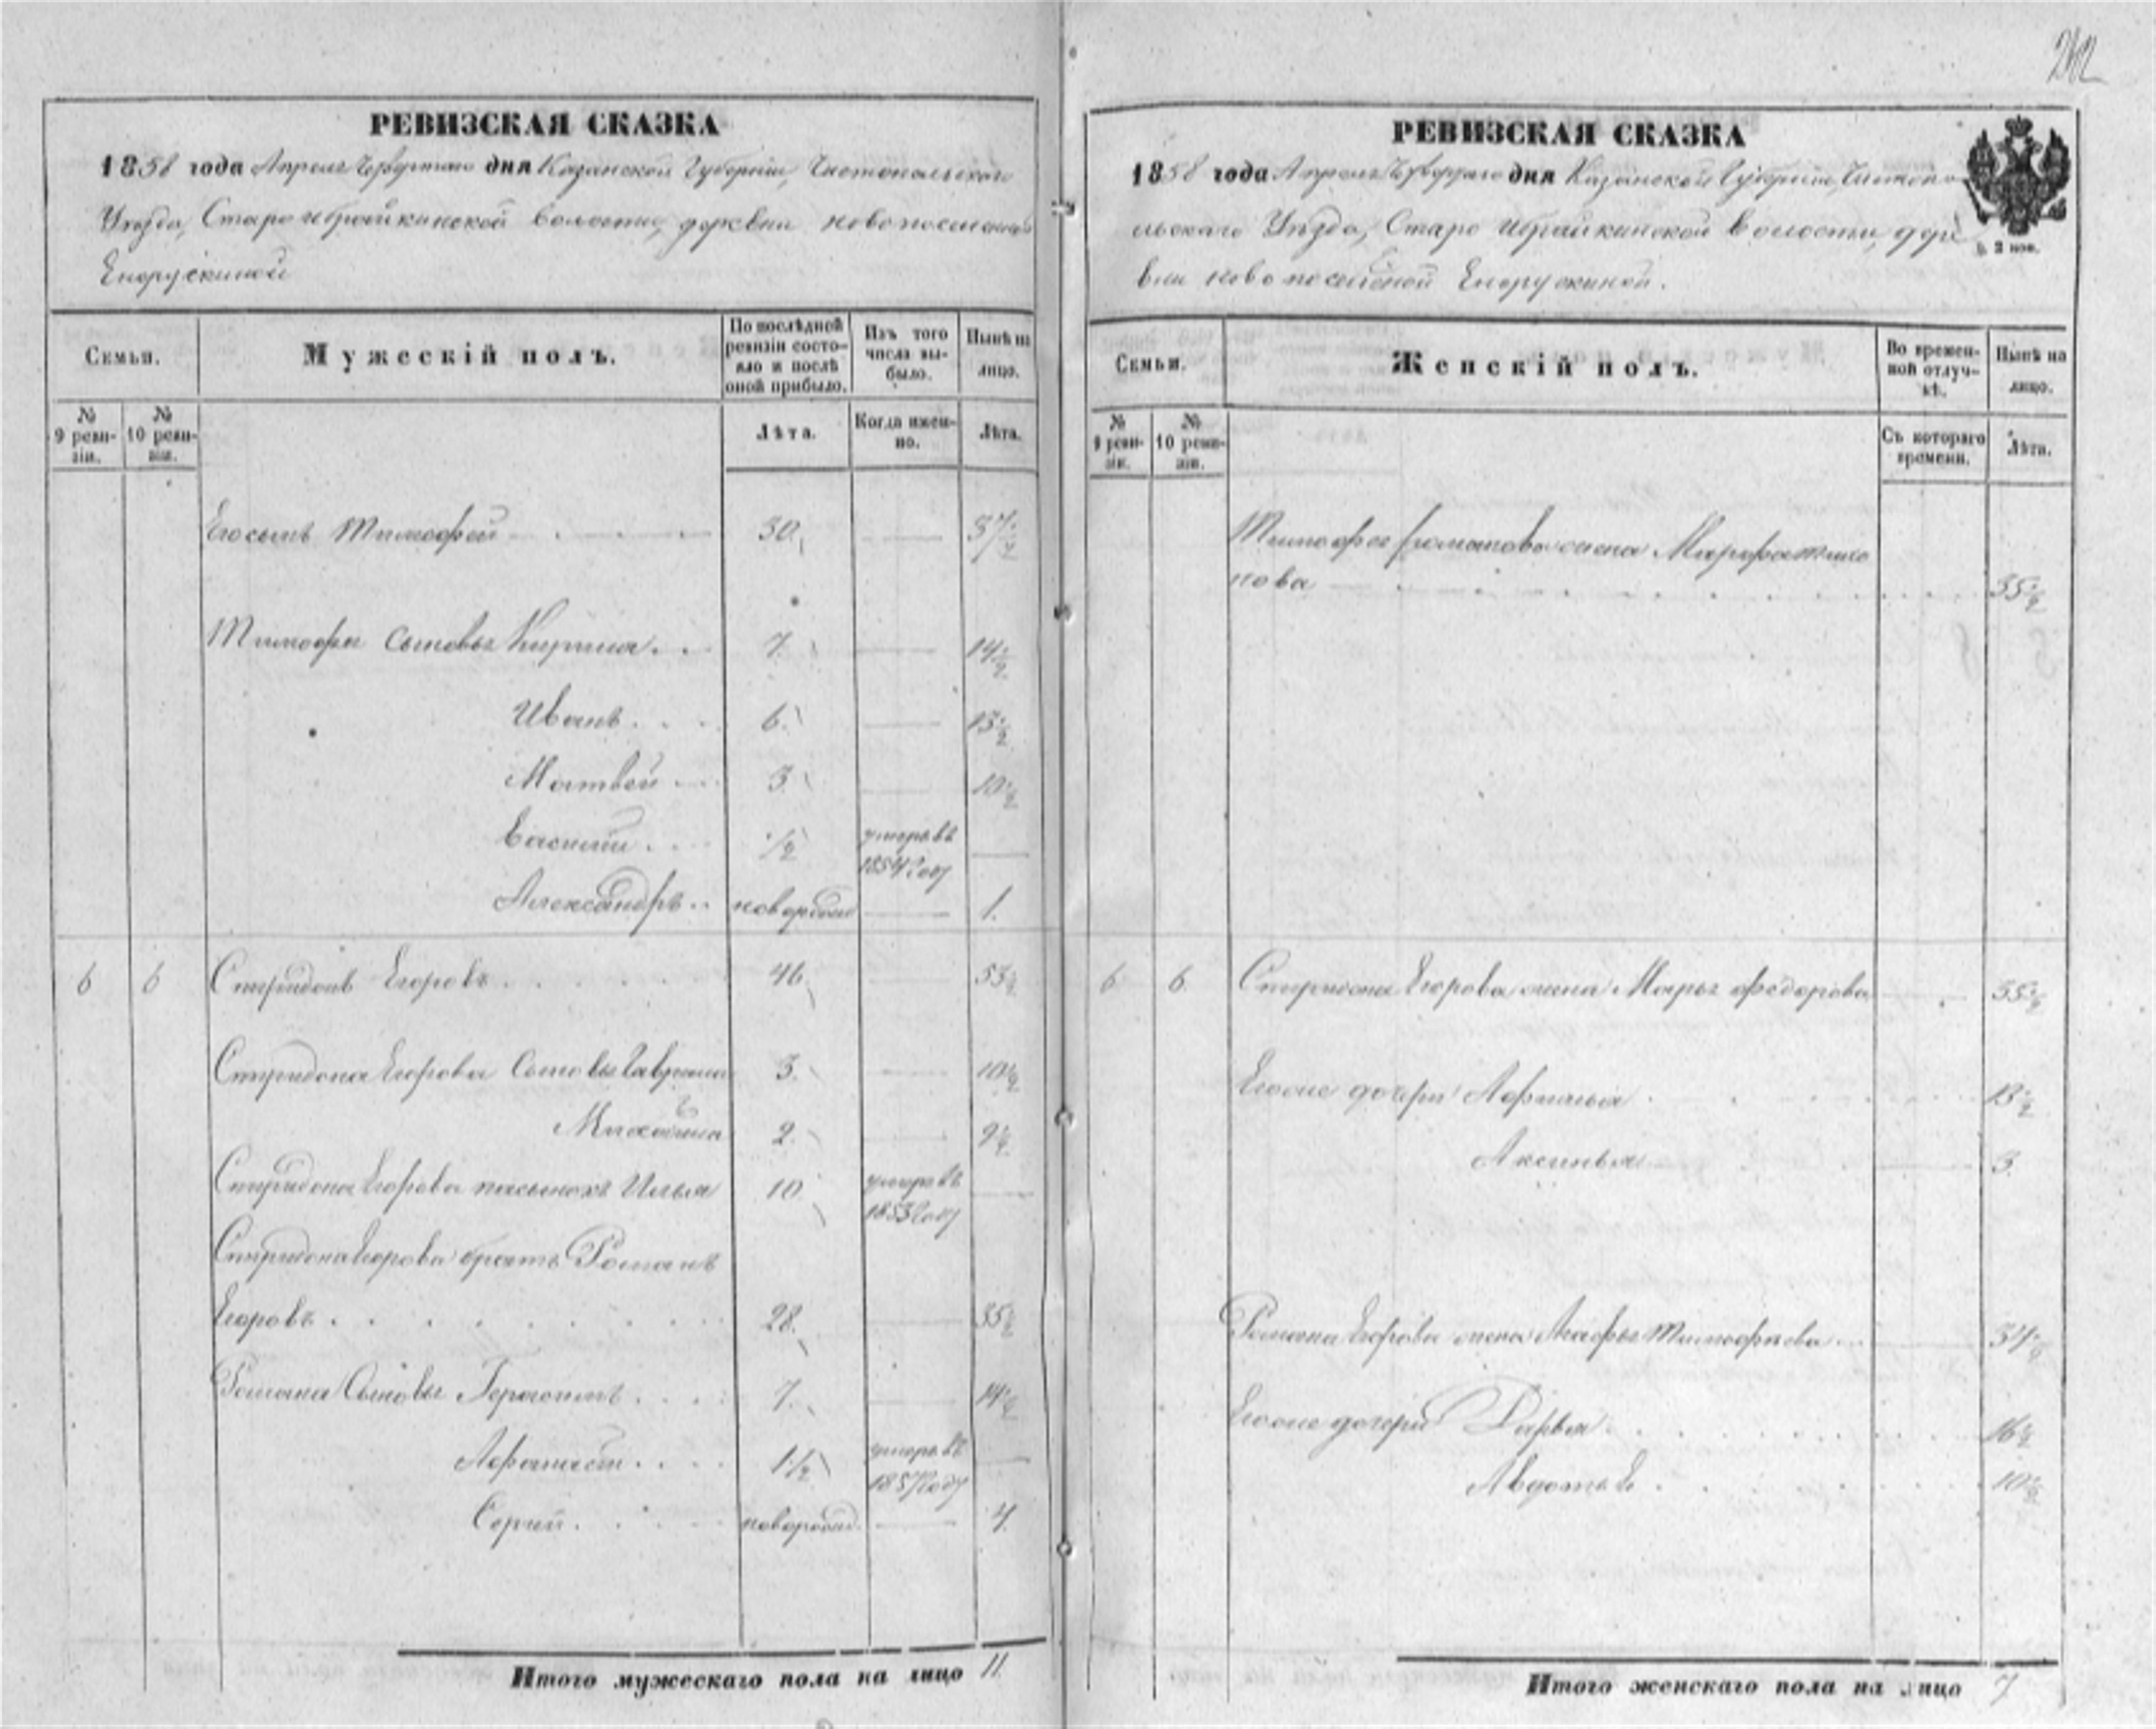 242
РЕВИЗСКАЯ СКАЗКА
1858 года Апреля Четвертаго дня Казанской Губернiи, Чистопольскаго
Уѣзда, Староибрайкинской волости, деревни новопоселеной
Енорускиной
Семьи.
Мужескiй полъ.
По послѣдней ревизiи состо-
яло и послѣ
оной прибыло.
Изъ того
числа вы-
было.
Нынѣ на
лицо.
№
9 реви-
зiи.
№
10 реви-
зiи.
Лѣта.
Когда имен-
но.
Лѣта.
Его сынъ Тимофей 30. 37 1/2
Тимофея Сыновья Кирила 7. 14 1/2
Иванъ 6. 13 1/2
Матвей 3. 10 1/2
Василий 1/2 умеръ въ
1854 году
Александръ новорожд 1.
6 6 Спиридонъ Егоровъ 46. 53 1/2
Спиридона Егорова Сыновья Гаврила 3. 10 1/2
Михайла 2. 9 1/2
Спиридона Егорова пасынокъ Илья 10. умеръ въ
1853 году
Спиридона Егорова братъ Романъ
Егоровъ 28. 35 1/2
Романа Сыновья Герасимъ 7. 14 1/2
Афанасiй 1 1/2 умеръ въ
1857 году
Сергий новорожд. 4.
Итого мужескаго пола на лицо 11.
РЕВИЗСКАЯ СКАЗКА
1858 года Апреля Четвертаго дня Казанской Губернiи, Чистопо-
льскаго Уѣзда, Староибрайкинской волости, дере-
вни новопоселеной Енорускиной.
Семьи.
Женскiй полъ.
Во времен-
ной отлуч-
кѣ.
Нынѣ на
лицо.
№
9 реви-
зiи.
№
10 реви-
зiи.
Съ котораго
времени.
Лѣта.
Тимофея Романова жена Марфа Тихо
нова 35 1/2
6 6. Спиридона Егорова жена Марья Федорова 35 1/2
Егоже дочери Афимья 13 1/2
Аксинья 3.
Романа Егорова жена Агафья Тимофеева 34 1/2
Егоже дочери Дарья 16 1/2
Авдотья 10 1/2
Итого женскаго пола на лицо 7